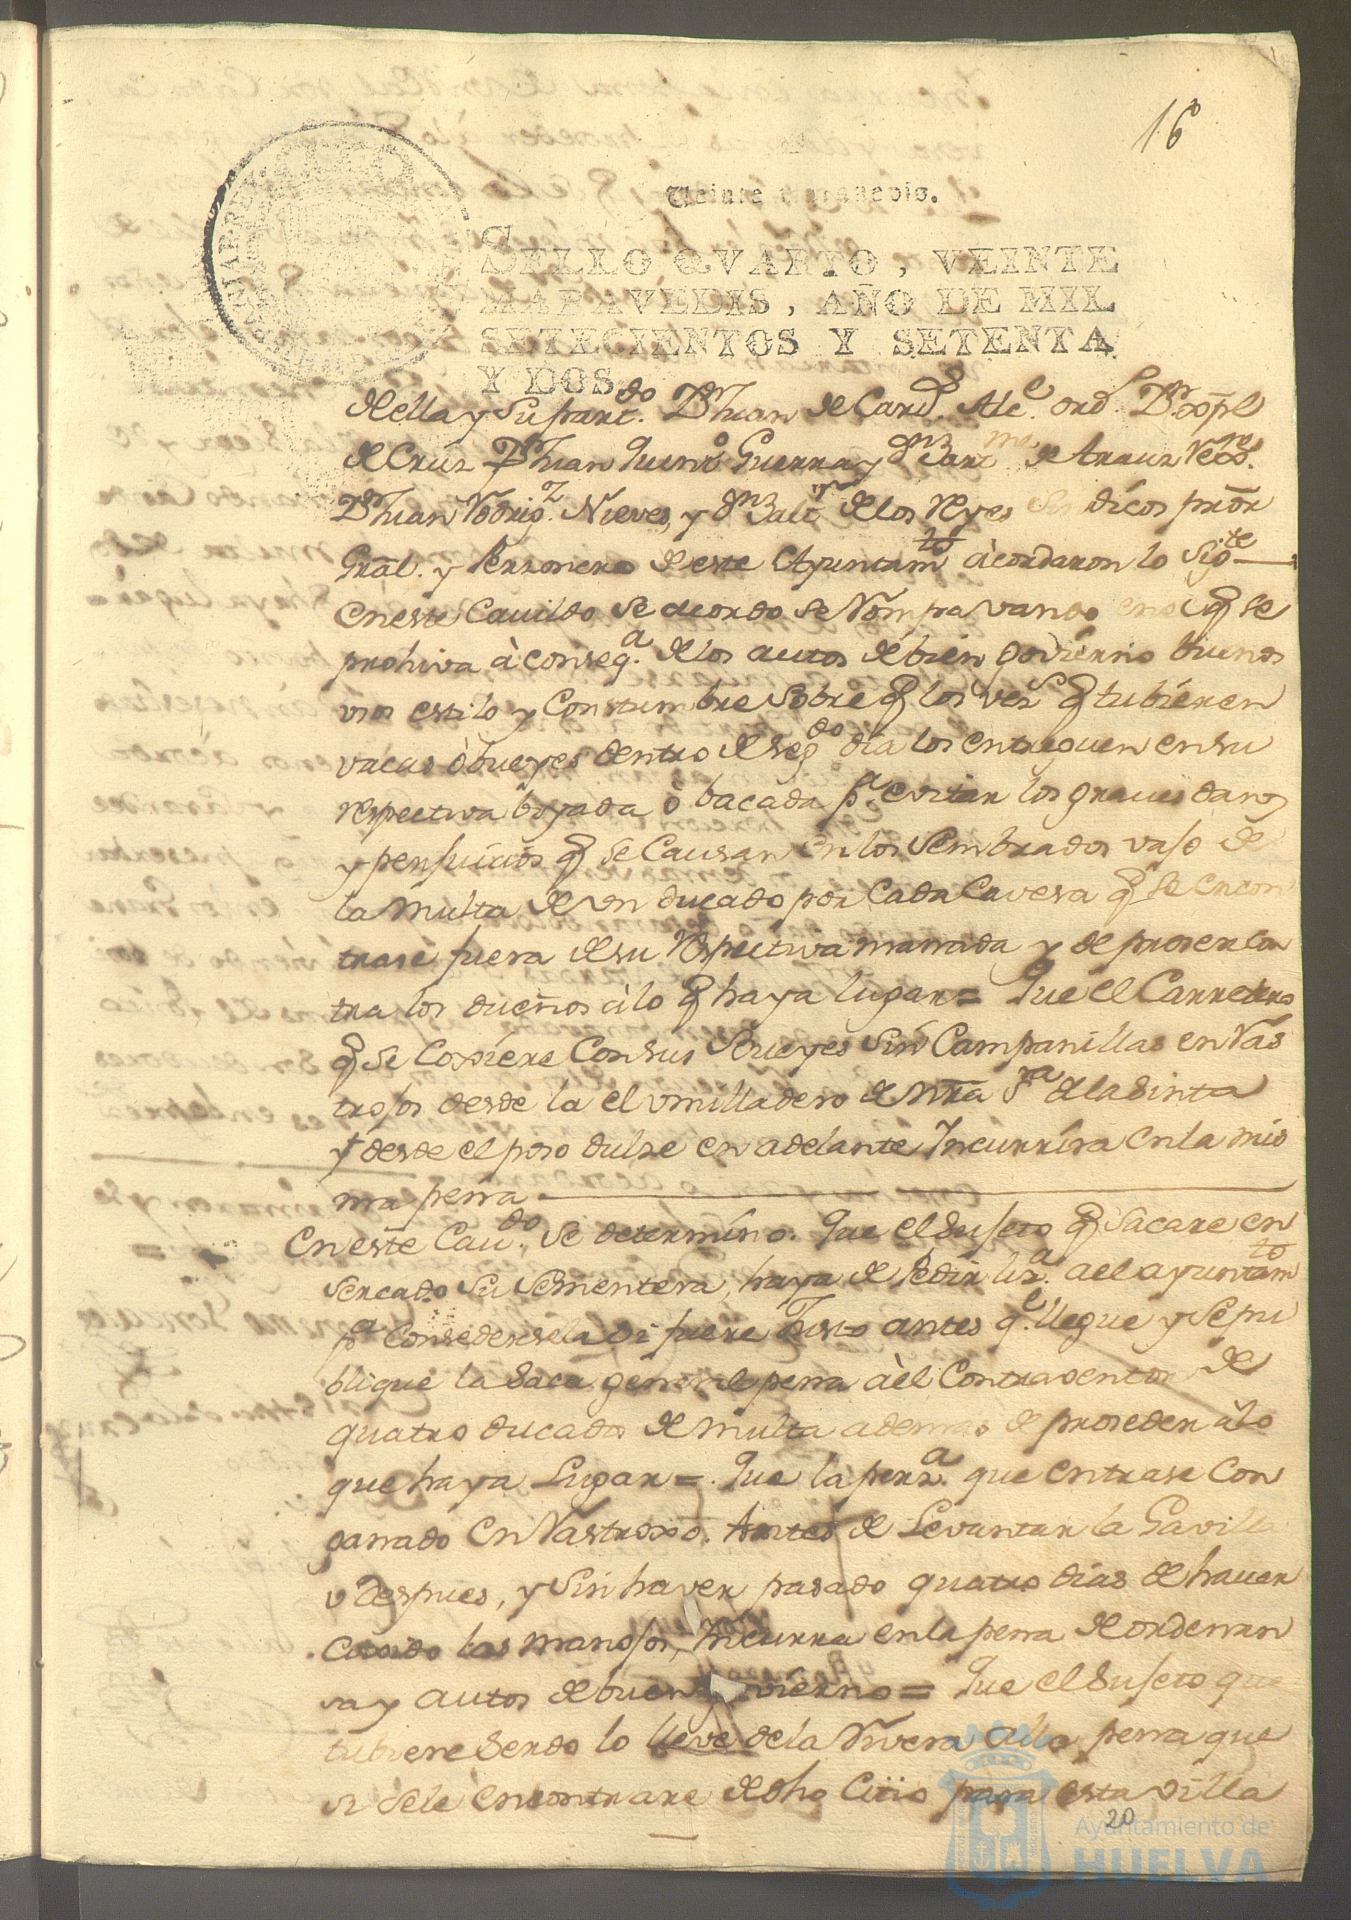 16
Veinte maravedis.
SELLO QVARTO, VEINTE
MARAVEDIS, AÑO DE MIL
SETECIENTOS Y SETENTA
Y DOS.
de ella y su partdo. Dn Juan de Card. Alce. ordo. Dn
de Cruz Dn Juan Quinto Guerra y Dn de Arauz
Dn Juan Rodrigz. Nieves, y Dn Salvr de los Reyes Sindicos pror
Gral. y Personero de este Ayuntamto acordaron lo sigte
En este Cavildo se acordo se Rompa vando en q se
prohiva à conseqa. de los autos de bien govierno buenos
vsos estilo y Constumbre sobre q los vez q tubieren
vacas ò bueyes dentro de segdo dia los entreguen en su
respectiva boyada ò bacada pa evitar los graves danos
y persuicios q se Causan en los sembrados vajo de
la Multa de vn ducado por Cada Cavesa q se encon
trase fuera de su respectiva manada y de proser con
tra los dueños à lo q haya lugar = Que el Carretero
q se Coxiere Con sus Bueyes sin Campanillas en Ras
trojos desde la el vmilladero de Ntra Sra de la Sinta
y desde el poso dulse en adelante Incurrira en la mis
ma pena
En este Caudo. se determino. Que el Sujeto q Sacare en
sercado su sementera, haya de Pedir liza. a el ayuntamto
pa Consedersela si fuere Justo antes qe llegue y se pu
blique la Saca general pena à el Contraventor de
quatro ducados de multa ademas de proseder à lo
que haya Lugar = Que la perza. que entrase Con
ganado en Rastroxo. Antes de Levantar la Gavilla
v despues, y sin haver pasado quatro dias de haver
Cosido los manojos, Incurra en la pena de ordenan
sa y autos de buen govierno = Que el Sujeto que
tubiere Serdo lo lleve de la Rivera alla pena que
si se le encontrare de dho Citio para esta Villa
20
Ayuntamiento de
HUELVA